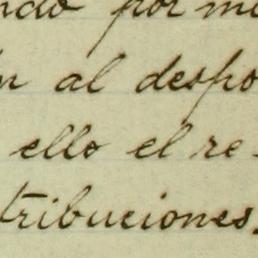 ndo por m
n al despo
ello el re-
tribuciones.